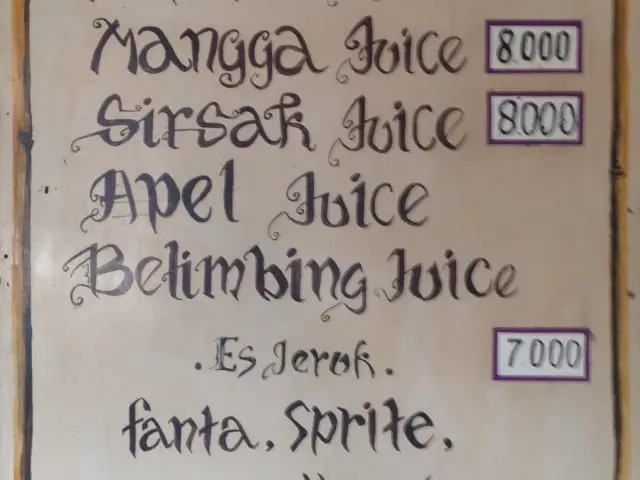 Mangga Juice 8000
Sirsak Juice 8000
Apel Juice
Belimbing Juice
. Es Jeruk . 7000
fanta, Sprite,